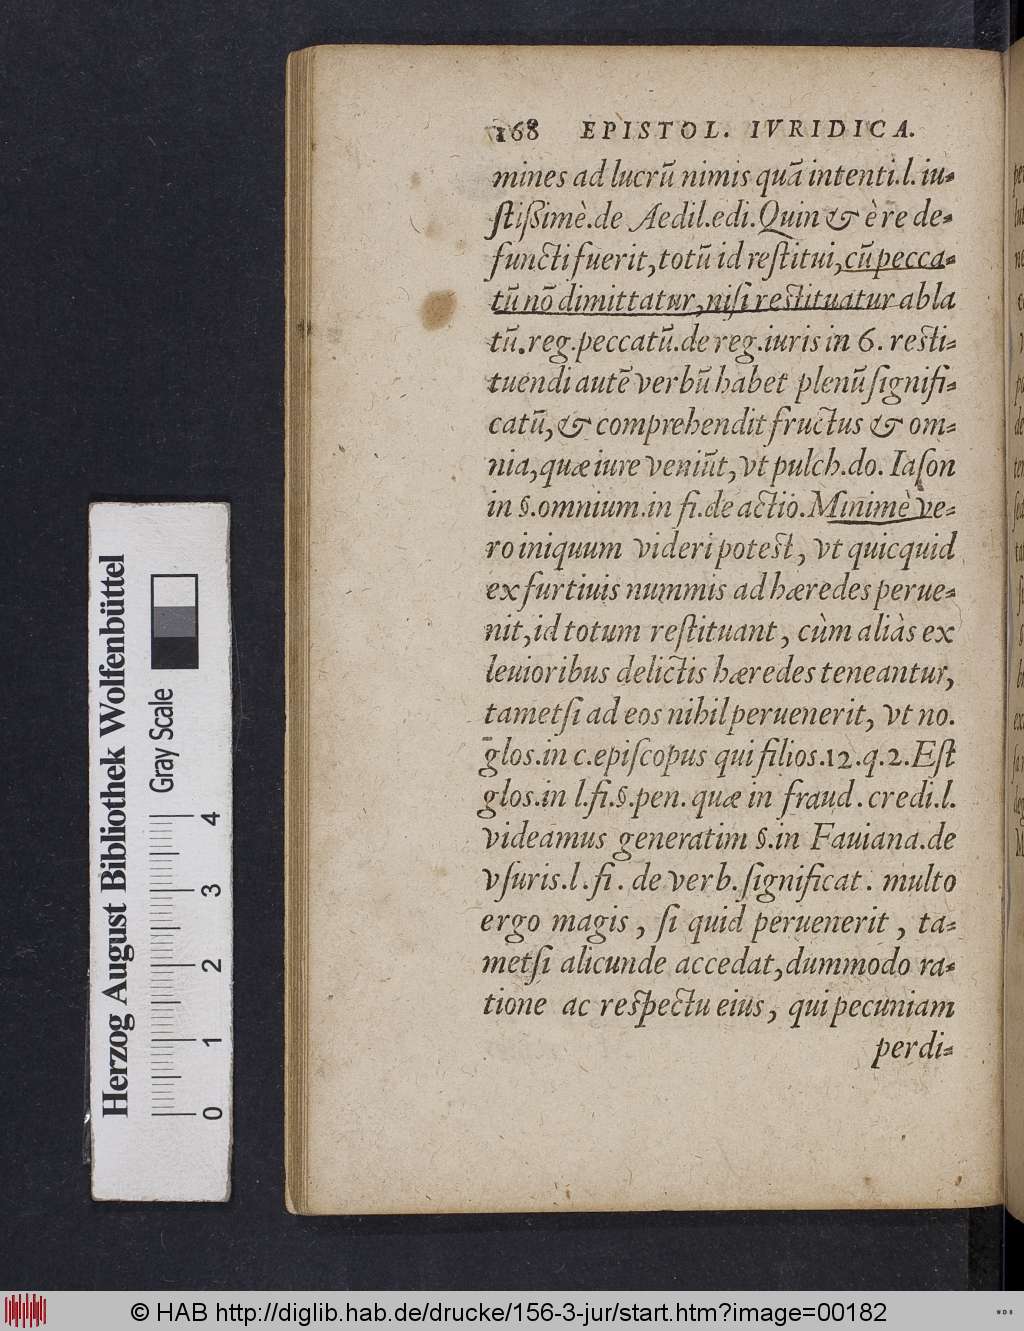 168 EPISTOL. IVRIDICA.
mines ad lucrū nimis quā intenti.l.iu-
ſtiſſimè.de Aedil.edi.Quin & è re de-
functi fuerit, totū id reſtitui, cū pecca-
tū nō dimittatur, niſi reſtituatur abla
tū.reg.peccatū.de reg.iuris in 6. reſti-
tuendi autē verbū habet plenū ſignifi-
catū, & comprehendit fructus & om-
nia, quæ iure veniūt, vt pulch.do. Iaſon
in §.omnium.in fi.de actio. Minimè ve-
ro iniquum videri poteſt, vt quicquid
ex furtiuis nummis ad hæredes perue-
nit, id totum reſtituant, cùm aliàs ex
leuioribus delictis hæredes teneantur,
tametſi ad eos nihil peruenerit, vt no.
glos.in c.epiſcopus qui filios.12.q.2.Eſt
glos.in l.fi.§.pen. quæ in fraud. credi.l.
videamus generatim §.in Fauiana.de
vſuris.l.fi. de verb.ſignificat. multo
ergo magis, ſi quid peruenerit, ta-
metſi alicunde accedat, dummodo ra-
tione ac reſpectu eius, qui pecuniam
perdi-
Herzog August Bibliothek Wolfenbüttel
Gray Scale
0 1 2 3 4
© HAB http://diglib.hab.de/drucke/156-3-jur/start.htm?image=00182